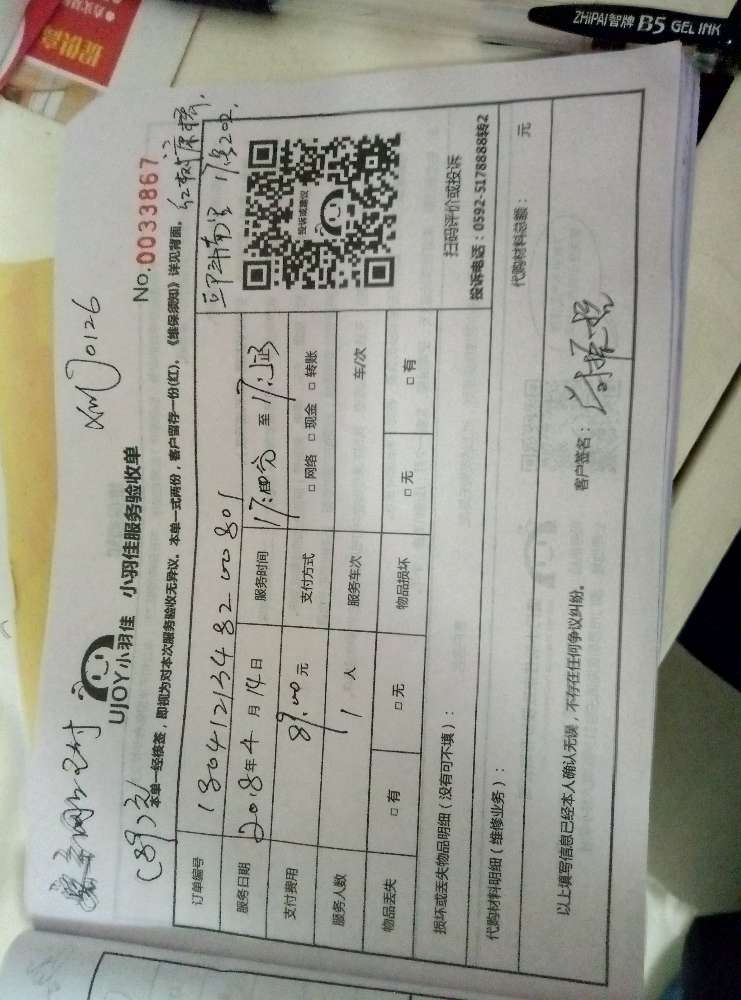 ZHIPAI智牌 B5 GEL INK
提供高
网上已付
(89)元
xm 0126
UJOY小羽佳 小羽佳服务验收单
No.0033867
本单一经核签，即视为对本次服务验收无异议。本单一式两份，客户留存一份(红)，《维保须知》详见背面。
订单编号
服务日期 2018年4月14日
服务时间 至
支付费用 89.00元
支付方式 □ 网络 □ 现金 □ 转账
服务人数 1人
服务车次 车/次
物品丢失 □ 有 □ 无
物品损坏 □ 无 □ 有
投诉或建议
扫码评价或投诉
投诉电话：0592-5178888转2
损坏或丢失物品明细（没有可不填）：
代购材料明细（维修业务）：
代购材料总额： 元
以上填写信息已经本人确认无误，不存在任何争议纠纷。
客户签名：